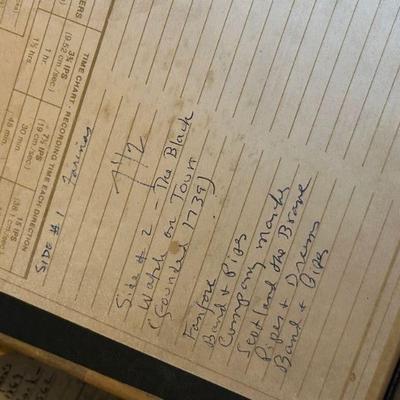 TIME CHART - RECORDING TIME EACH DIRECTION
3¾ IPS
(9.52 cm/sec.)
7½ IPS
(19 cm/sec)
15 IPS
1 hr.
30 min
1½ hrs.
45 min.
SIDE # 1
7 1/2
Side # 2 - The Black
Watch on Town
(Founded 1739)
Fanfare
Band & Pipes
Company Marches
Scotland the Brave
Pipes + Drums
Band & Pipes